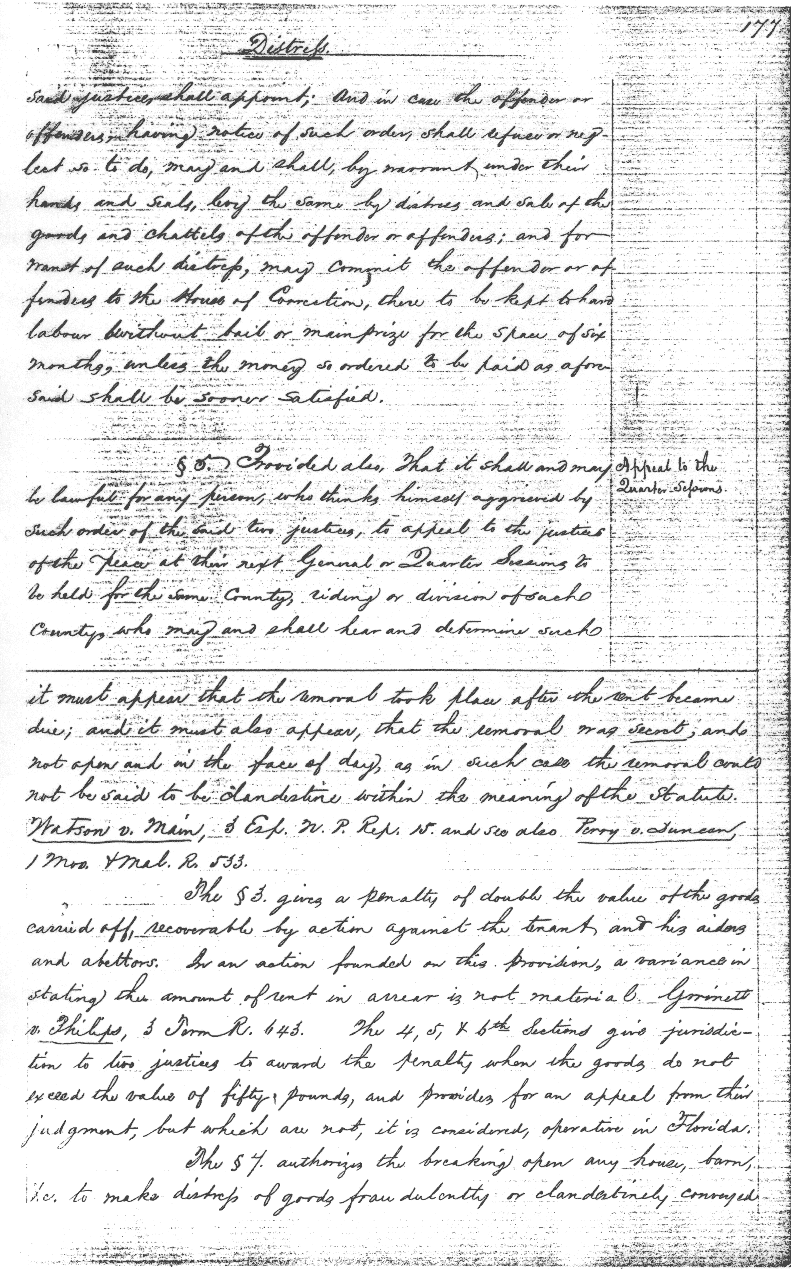 177
Distress.
said justices shall appoint; And in case the offender or
offenders, having notice of such order, shall refuse or neg-
lect so to do, may and shall, by warrant under their
hands and seals, levy the same by distress and sale of the
goods and chattels of the offender or offenders; and for
want of such distress, may commit the offender or of
fenders to the House of Correction, there to be kept to hard
labour without bail or mainprize for the space of six
months, unless the money so ordered to be paid as afore
said shall be sooner satisfied.
§ 5. Provided also, That it shall and may
Appeal to the
Quarter Sessions.
be lawful for any person, who thinks himself aggrieved by
such order of the said two justices, to appeal to the justices
of the Peace at their next General or Quarter Sessions to
be held for the same County, riding or division of such
County, who may and shall hear and determine such
it must appear that the removal took place after the rent became
due; and it must also appear, that the removal was secret; and
not open and in the face of day, as in such case the removal could
not be said to be clandestine within the meaning of the Statute.
Watson v. Main, 3 Esp. N. P. Rep. 15. and see also Perry v. Duncan,
1 Moo. & Mal. R. 533.
The § 3. gives a penalty of double the value of the goods
carried off, recoverable by action against the tenant and his aiders
and abettors. In an action founded on this provision, a variance in
stating the amount of rent in arrear is not material. Gwinett
v. Philips, 3 Term R. 643. The 4, 5, & 6th Sections give jurisdic-
tion to two justices to award the penalty when the goods do not
exceed the value of fifty pounds, and provides for an appeal from their
judgment, but which are not, it is considered, operative in Florida.
The § 7. authorizes the breaking open any house, barn,
&c. to make distress of goods fraudulently or clandestinely conveyed